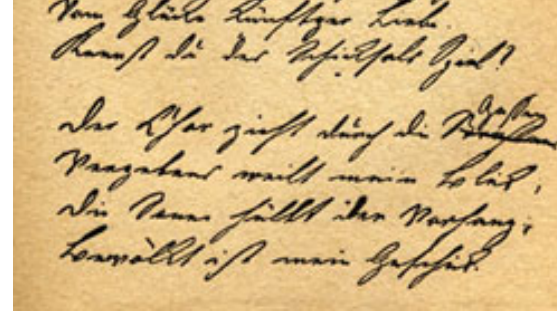 Vom Glücke künftger Liebe.
Kennst du des Schicksals Spiel?
Der Chor zieht durch die Gassen
Vergebens weilt mein Blick,
Die hüllt Vorhang;
Bewölkt ist mein Geschick.